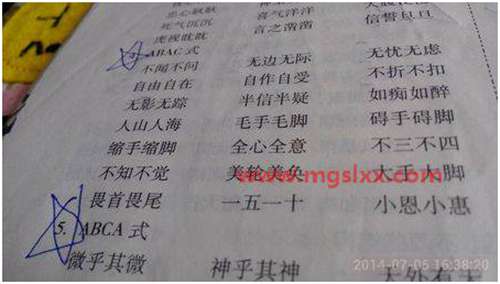 死气沉沉 喜气洋洋 信誓旦旦
虎视眈眈 言之凿凿
ABAC 式
不闻不问 无边无际 无忧无虑
自由自在 自作自受 不折不扣
无影无踪 半信半疑 如痴如醉
人山人海 毛手毛脚 碍手碍脚
缩手缩脚 全心全意 不三不四
不知不觉 美轮美奂 大手大脚
www.mgslxx.com
畏首畏尾 一五一十 小恩小惠
5. ABCA 式
微乎其微 神乎其神 天外有天
2014-07-05 16:38:20